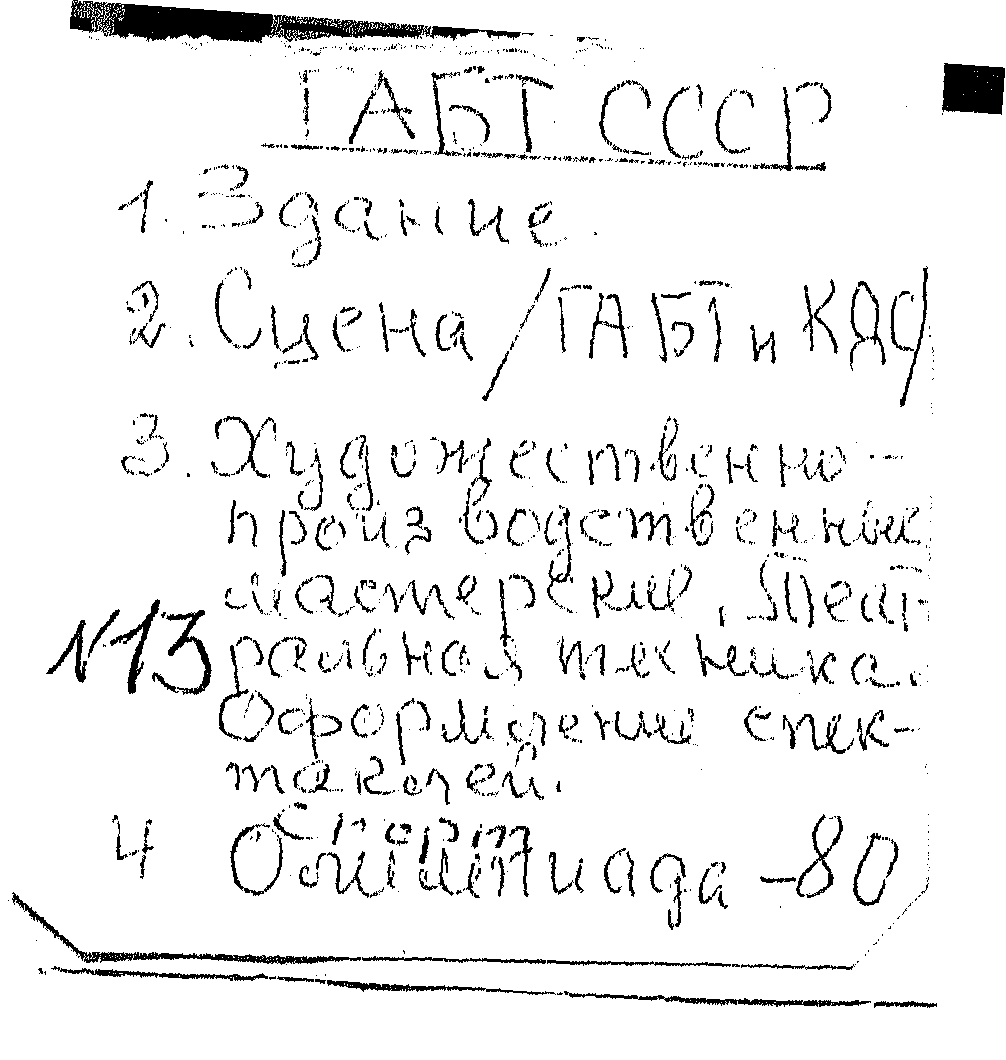 ГАБТ СССР
1. Здание.
2. Сцена /ГАБТ и КДС/
3. Художественно-
производственные
мастерские. Теат-
№13
ральная техника.
Оформление спек-
таклей.
Спорт
4 Олимпиада -80